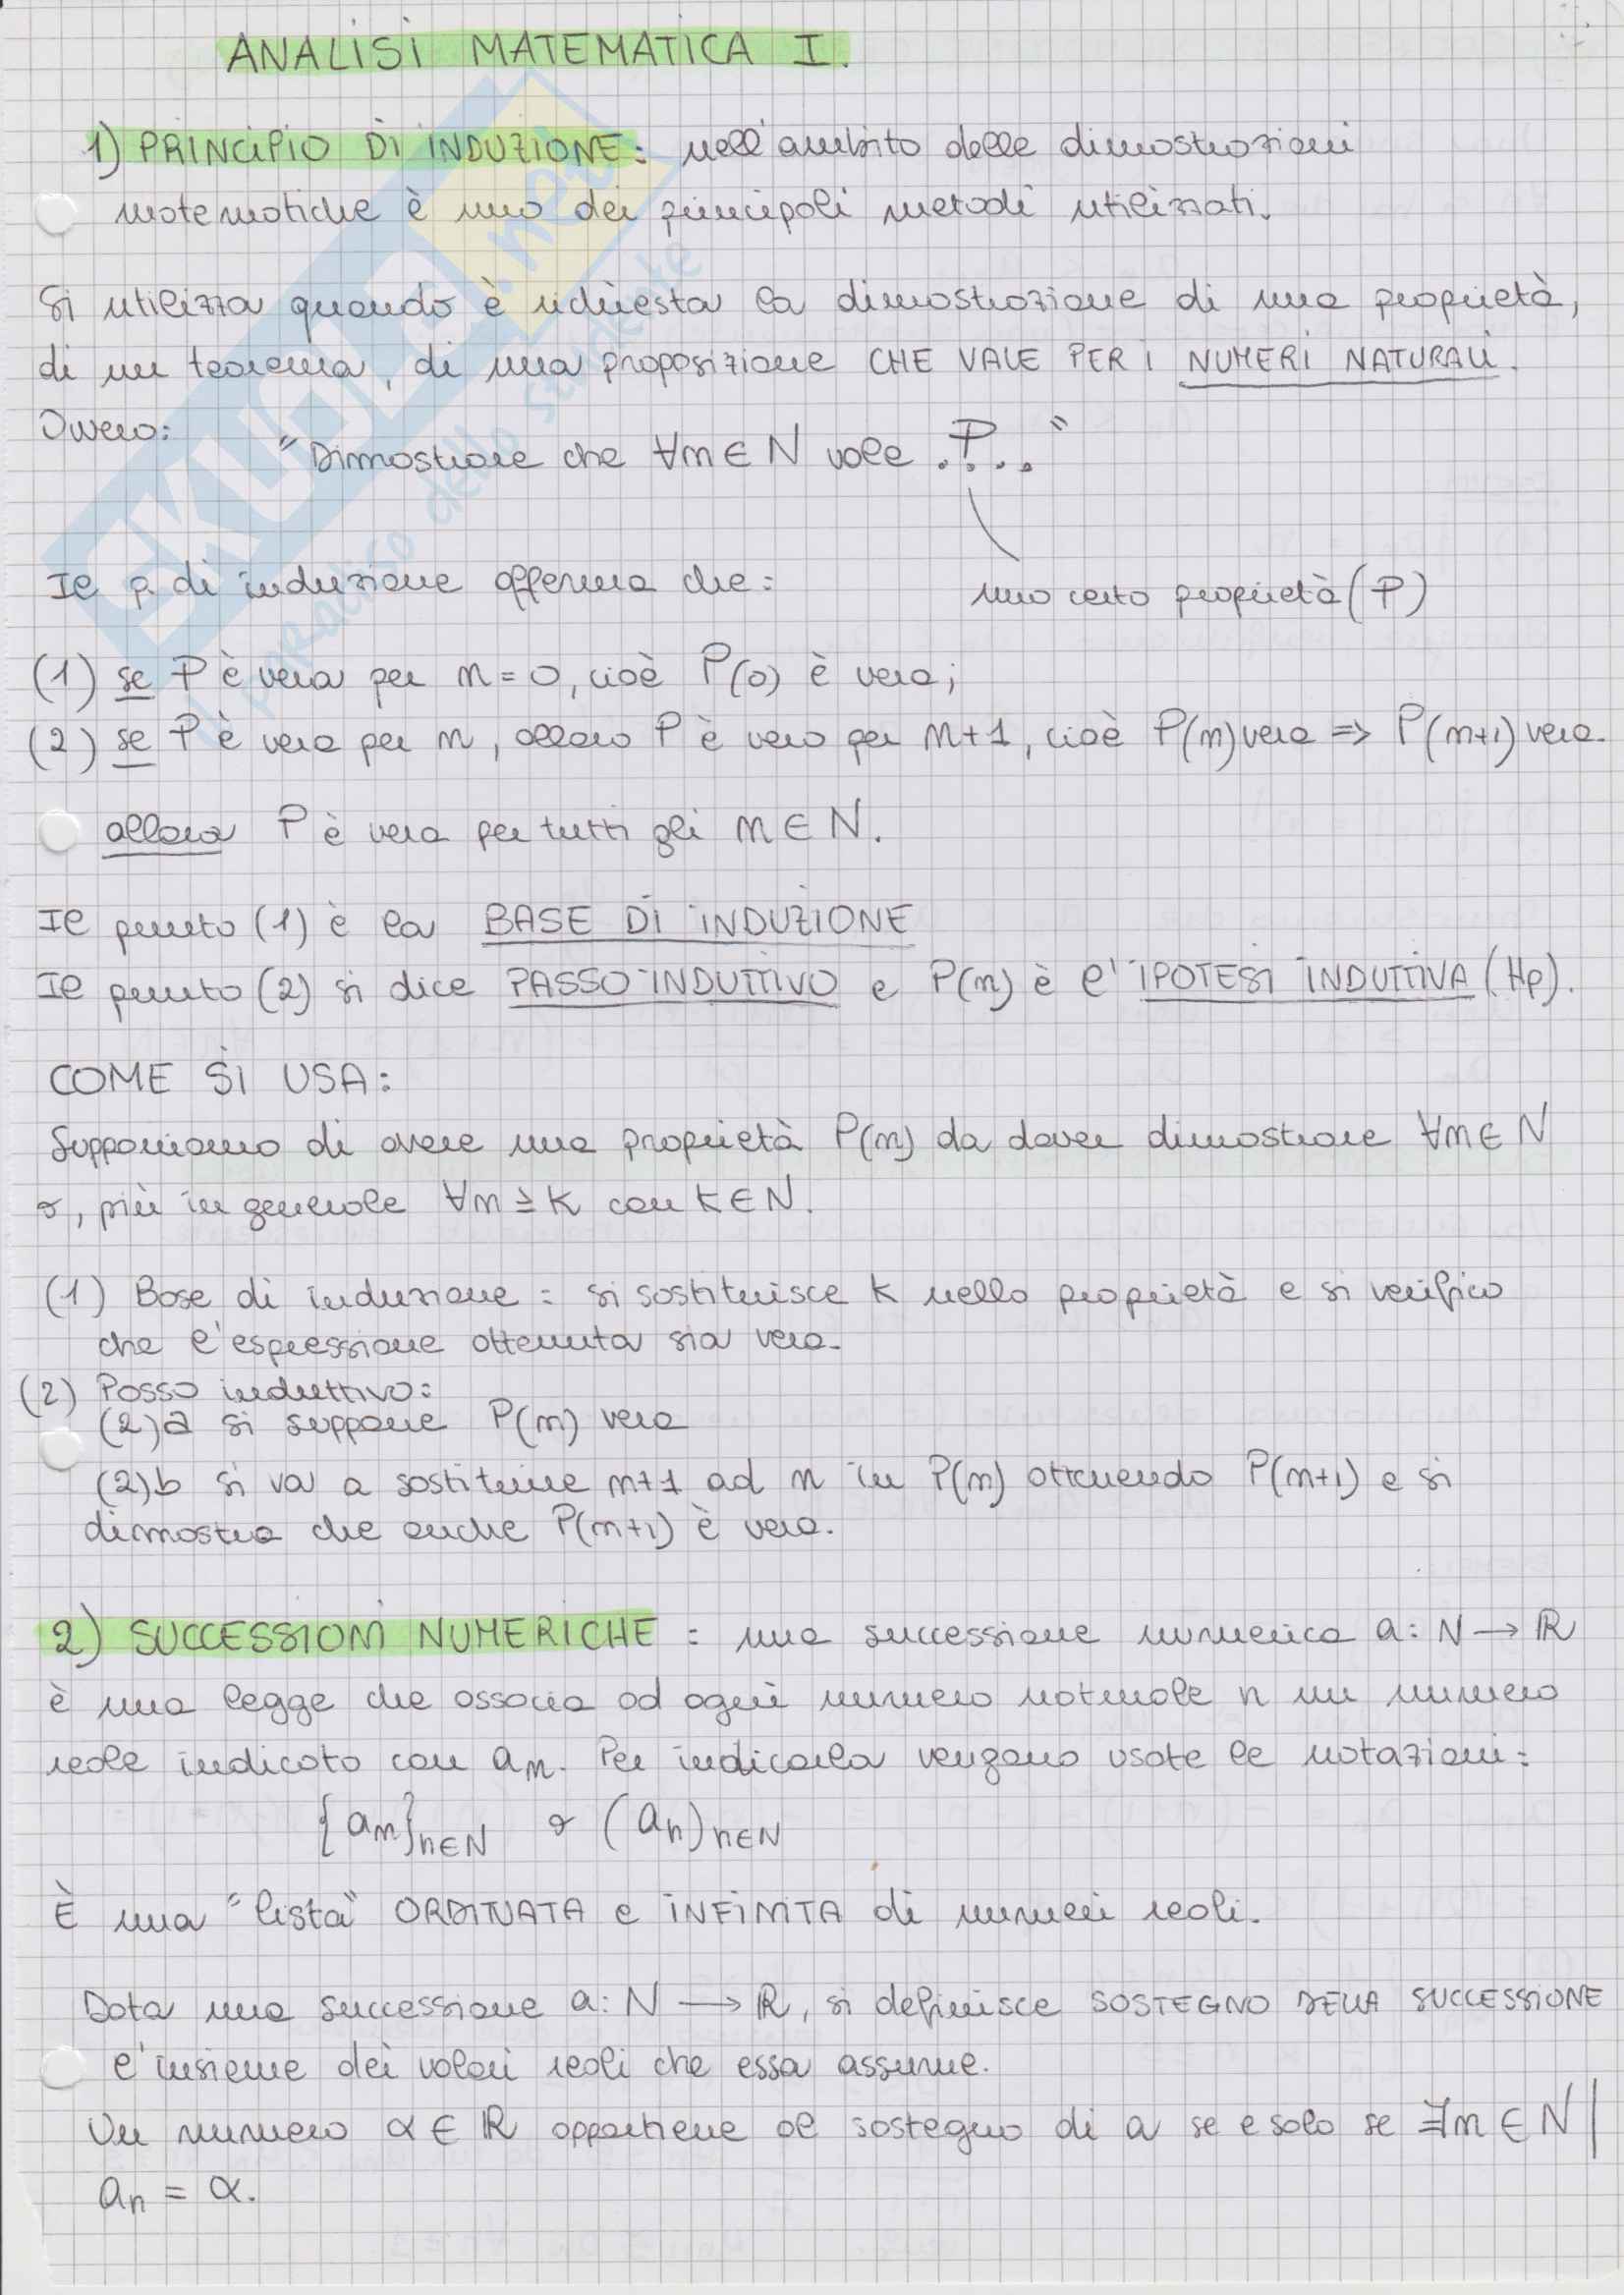 ANALISI MATEMATICA I.
1) PRINCIPIO DI INDUZIONE: nell'ambito delle dimostrazioni
matematiche è uno dei principali metodi utilizzati.
Si utilizza quando è richiesta la dimostrazione di una proprietà,
di un teorema, di una proposizione CHE VALE PER I NUMERI NATURALI.
Ovvero:
"Dimostrare che ∀n∈N vale .P..."
una certa proprietà (P)
Il p. di induzione afferma che:
(1) se P è vera per n=0, cioè P(0) è vera;
(2) se P è vera per n, allora P è vera per n+1, cioè P(n) vera => P(n+1) vera.
allora P è vera per tutti gli n∈N.
Il punto (1) è la BASE DI INDUZIONE
Il punto (2) si dice PASSO INDUTTIVO e P(n) è l'IPOTESI INDUTTIVA (Hp).
COME SI USA:
Supponiamo di avere una proprietà P(n) da dover dimostrare ∀n∈N
o, più in generale ∀n≥k con k∈N.
(1) Base di induzione: si sostituisce k nella proprietà e si verifica
che l'espressione ottenuta sia vera.
(2) Passo induttivo:
(2)a si suppone P(n) vera
(2)b si va a sostituire n+1 ad n in P(n) ottenendo P(n+1) e si
dimostra che anche P(n+1) è vera.
2) SUCCESSIONI NUMERICHE: una successione numerica a: N → ℝ
è una legge che associa ad ogni numero naturale n un numero
reale indicato con aₙ. Per indicarla vengono usate le notazioni:
{aₙ}n∈N o (aₙ)n∈N
È una "lista" ORDINATA e INFINITA di numeri reali.
Data una successione a: N → ℝ, si definisce SOSTEGNO DELLA SUCCESSIONE
l'insieme dei valori reali che essa assume.
Un numero α∈ℝ appartiene al sostegno di a se e solo se ∃n∈N |
aₙ = α.
SKUOLA.net
il paradiso dello studente